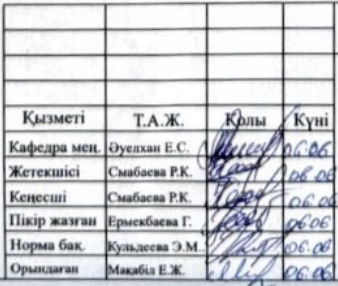 Қызметі Т.А.Ж. Қолы Күні
Кафедра мең. Әуелхан Е.С. 06.06
Жетекшісі Смабаева Р.К. 06.06
Кеңесші Смабаева Р.К. 06.06
Пікір жазған Ермекбаева Г. 06.06
Норма бақ. Кульдеева Э.М. 06.06
Орындаған Мақабіл Е.Ж. 06.06